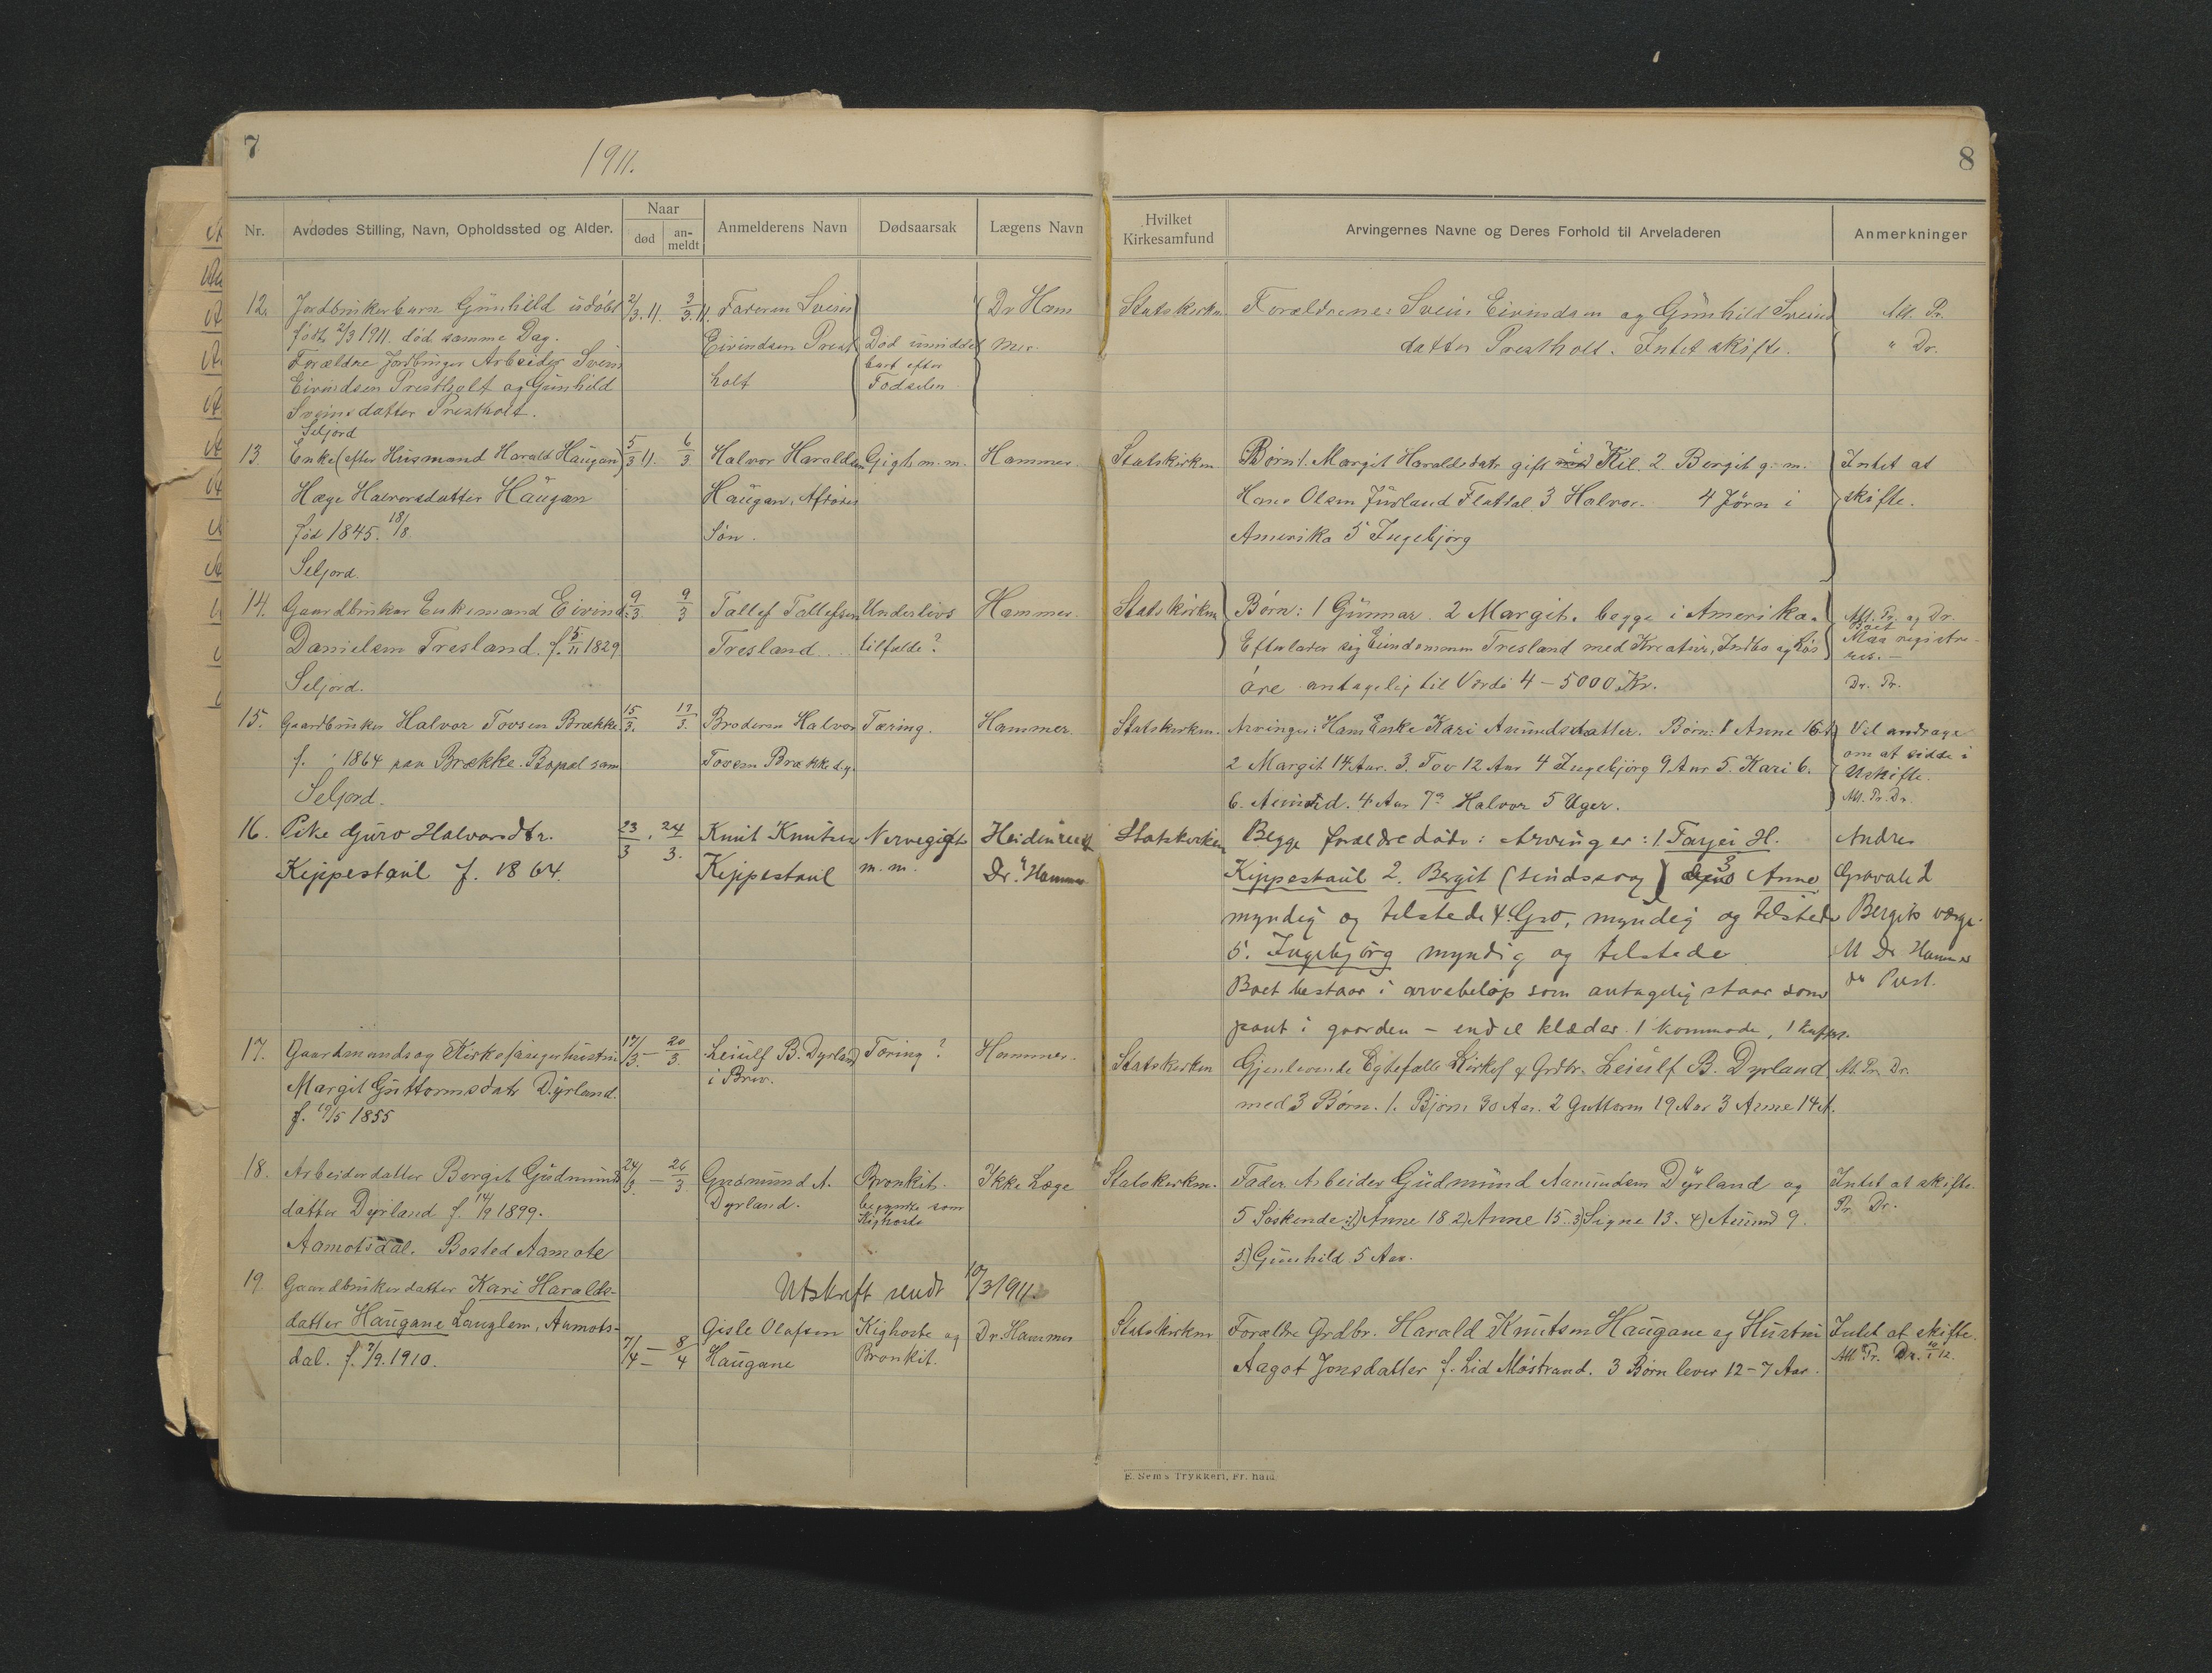 7
1911.
8
Nr.
Avdødes Stilling, Navn, Opholdssted og Alder.
Naar
død
an-
meldt
Anmelderens Navn
Dødsaarsak
Lægens Navn
Hvilket
Kirkesamfund
Arvingernes Navne og Deres Forhold til Arveladeren
Anmerkninger
12. Jordbrukerbarn Gunhild udøbt 2/3. 11. 3/3. 11. Faderen Svein Dr Ham Statskirken Forældrene: Svein Eivindsen og Gunhild Sveins Att. Pr.
født 2/3 1911. død samme Dag. Eivindsen Prest Død umiddel mer. datter Prestholt. Intet skifte. " Dr.
Forældre Arbeider Svein bart efter
Eivindsen Prestholt og Gunhild holt Fødselen
Sveinsdatter Prestholt.
Seljord
13. Enke (efter Husmand Harald Haugan) 5/3 11. 6/3 Halvor Haraldsen Gigt m. m. Hammer. Statskirken Børn 1. Margit Haraldsdatr gift i Kil. 2 Bergit g. m. Intet at
Hæge Halvorsdatter Haugan Haugan, Afdødes Hans Olsen Juvland Flatdal 3 Halvor. 4 Jørn i skifte.
fød 1845. 18/8 Søn. Amerika 5 Ingebjørg
Seljord.
14. Gaardbruker Enkemand Eivind 9/3 9/3 Tallef Tallefsen Underlivs Hammer. Statskirken Børn: 1 Gunnar. 2 Margit. begge i Amerika. Att. Pr. og Dr.
Danielsen Tresland. f. 5/11 1829 Tresland tilfælde? Efterlader sig Eiendommen Tresland med Kreatur, Indbo og Løs Boet
Maa registre-
res. —
Seljord. øre antagelig til Værdi 4 – 5000 Kr. Dr. Pr.
15. Gaardbruker Halvor Tovsen Brække 15/3. 17/3. Broderen Halvor Tæring. Hammer. Statskirken. Arvinger: Hans Enke Kari Amundsdatter. Børn: 1 Anne 16 A Vil andrage
f. 1864 paa Brække. Bopæl sam Tovsen Brække d.y. 2 Margit 14 Aar. 3. Tov 12 Aar 4 Ingebjørg 9 Aar 5. Kari 6. om at sidde i
Uskifte.
Seljord. 6. Amund. 4 Aar 7. Halvor 5 Uger. Att. Pr. Dr.
16. Pike Guro Halvorsdtr. 23/3. 24/3. Knut Knutsen Nervegigt Heidenreich Statskirken Begge forældre døde: Arvinger: 1. Tarjei H. Andres
Kippestaul f. 1864. Kippestaul m. m. Dr. Hammer Kippestaul 2. Bergit (sindssvag) 3 Anne Gravalid
myndig og tilstede 4. Gro, myndig og tilstede Bergits værge.
5. Ingebjørg myndig og tilstede Dr Hammer
Boet bestaar i arvebeløp som antagelig staar som
pant i gaarden – endel klæder 1 kommode, 1 kuffert.
17. Gaardmands og Kirkesangerhustru 17/3 – 20/3. Leiulf B. Dyrland Tæring? Hammer. Statskirken Gjenlevende Egtefælle Kirkes. & Grdbr. Leiulf B. Dyrland Att. Pr. Dr.
Margit Guttormsdatr Dyrland. i Brev. med 3 Børn. 1. Bjørn 30 Aar. 2 Guttorm 19 Aar 3 Anne 14 A.
f. 19/5 1855
18. Arbeiderdatter Bergit Gudmunds 24/3 – 26/3 Gudmund A. Bronkit. Ikke Læge Statskirken. Fader. Arbeider Gudmund Aamundsen Dyrland og Intet at skifte.
datter Dyrland f. 14/9 1899. Dyrland. begyndte som
Kighoste 5 Søskende: 1) Anne 18 2) Anne 15. 3) Signe 13. 4) Amund 9. Pr. Dr.
Aamotsdal. Bosted Aamote 5) Gunhild 5 Aar.
19. Gaardbrukerdatter Kari Haralds- Utskrift sendt 10/3 1911.
datter Haugane Langlem, Aamots- 7/4 – 8/4 Gisle Olafsen Kighoste og Dr. Hammer Statskirken Forældre Grdbr. Harald Knutsen Haugane og Hustru Intet at skifte.
dal. f. 7/9. 1910. Haugane Bronkit. Aagot Jonsdatter f. Lid Møstrand. 3 Børn lever 12 – 7 Aar. Att. Pr. Dr.
E. Sem's Trykkeri, Fr.hald.